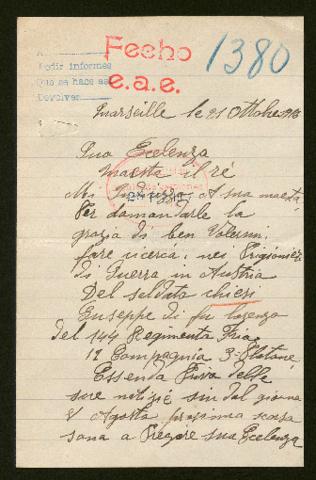 Pedir informes
Que se hace as
Devolver
Fecho
e.a.e.
1380
Marseille le 21 Ottobre
Sua Ecelenza
maesta il ré
Mi A sua maestá
Per damandarle la
grazia di ben Volermi
fare ricerca, nei Prigionieri
di Guerra in Austria
Del soldato chieri
Giuseppe di fu
del 144 Regimenta
12 Compagnia 3º Platone
Essenda Priva delle
sue notizie sin dal giorno
8 Agosta prossima scorsa
sona a Pregare sua Ecelenza